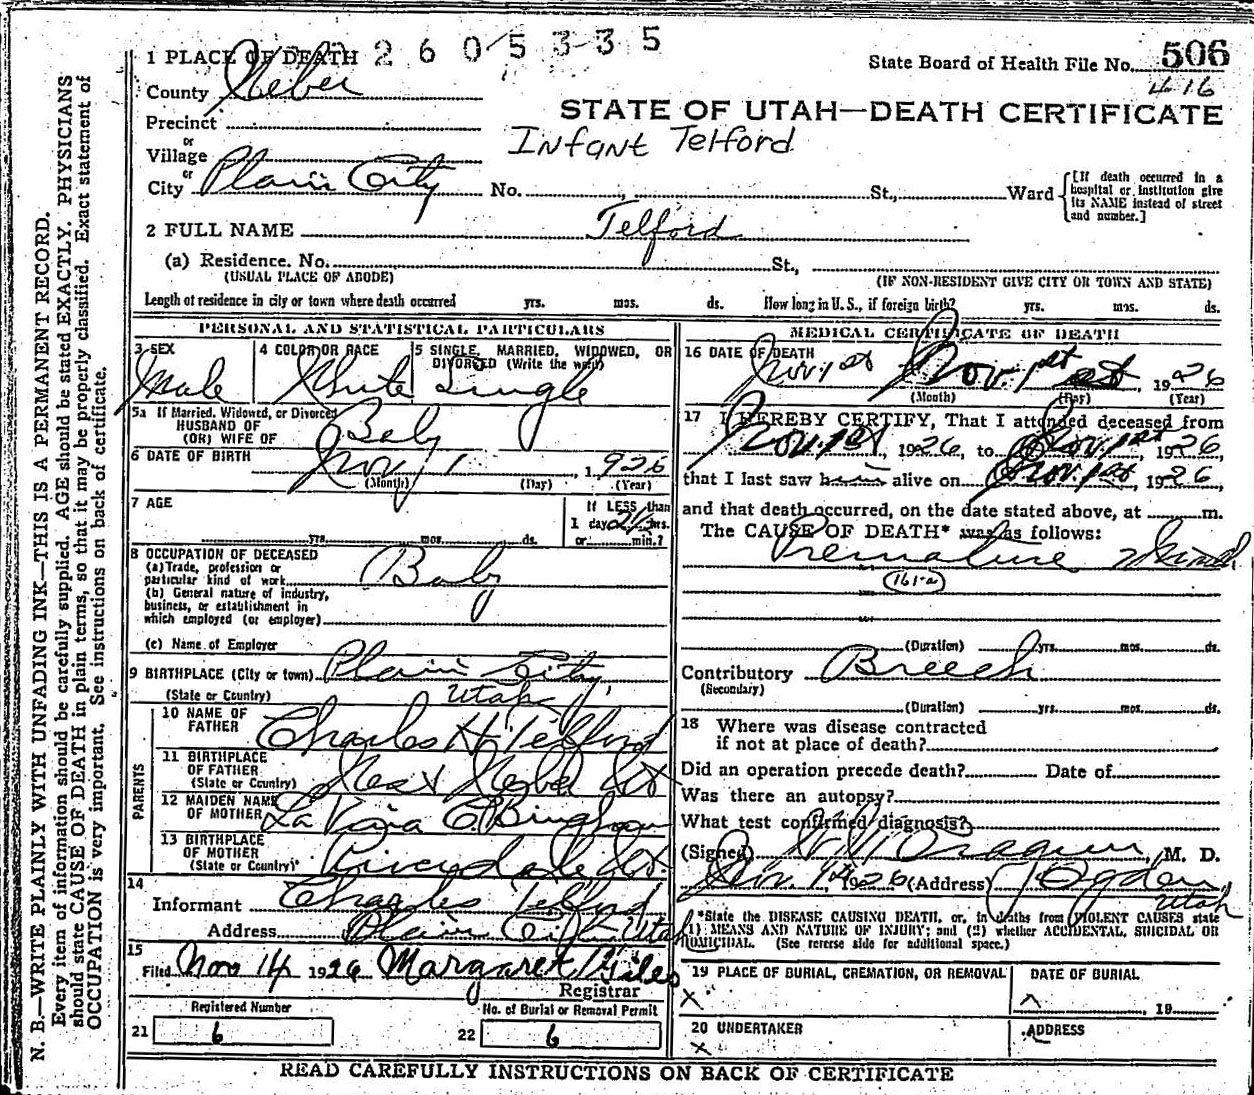 2605335
State Board of Health File No. 506
416
1 PLACE OF DEATH
County Weber
STATE OF UTAH—DEATH CERTIFICATE
Precinct
or
Village
Infant Telford
or
City Plain City No. St., Ward
[If death occurred in a hospital or institution give its NAME instead of street and number.]
2 FULL NAME Telford
(a) Residence. No. St.,
(USUAL PLACE OF ABODE) (IF NON-RESIDENT GIVE CITY OR TOWN AND STATE)
Length of residence in city or town where death occurred yrs. mos. ds. How long in U.S., if foreign birth? yrs. mos. ds.
PERSONAL AND STATISTICAL PARTICULARS
3 SEX
Male
4 COLOR OR RACE
White
5 SINGLE, MARRIED, WIDOWED, OR
DIVORCED (Write the word)
Single
5a If Married, Widowed, or Divorced
HUSBAND OF
(OR) WIFE OF Baby
6 DATE OF BIRTH Nov 1, 1926
(Month) (Day) (Year)
7 AGE
If LESS than
1 day 2½ hrs.
yrs. mos. ds. or min.?
8 OCCUPATION OF DECEASED
(a) Trade, profession or
particular kind of work Baby
(b) General nature of industry,
business, or establishment in
which employed (or employer)
(c) Name of Employer
9 BIRTHPLACE (City or town) Plain City,
(State or Country) Utah
PARENTS
10 NAME OF
FATHER Charles H Telford
11 BIRTHPLACE
OF FATHER
(State or Country) West Weber Ut
12 MAIDEN NAME
OF MOTHER La Vina C. Bingham
13 BIRTHPLACE
OF MOTHER
(State or Country) Riverdale Ut.
14
Informant Charles Telford
Address Plain City Utah
15
Filed Nov 14 1926 Margaret Giles
Registrar
Registered Number
21 6
No. of Burial or Removal Permit
22 6
MEDICAL CERTIFICATE OF DEATH
16 DATE OF DEATH
Nov 1st Nov. 1st 1926
(Month) (Day) (Year)
17 I HEREBY CERTIFY, That I attended deceased from
Nov. 1st, 1926, to Nov. 1st 1926,
that I last saw him alive on Nov. 1st, 1926,
and that death occurred, on the date stated above, at m.
The CAUSE OF DEATH* was as follows:
Premature
161-a
(Duration) yrs. mos. ds.
Contributory Breech
(Secondary)
(Duration) yrs. mos. ds.
18 Where was disease contracted
if not at place of death?
Did an operation precede death? Date of
Was there an autopsy?
What test confirmed diagnosis?
(Signed), M. D.
1926 (Address) Ogden,
Utah
*State the DISEASE CAUSING DEATH, or, in deaths from VIOLENT CAUSES state
(1) MEANS AND NATURE OF INJURY; and (2) whether ACCIDENTAL, SUICIDAL OR
HOMICIDAL. (See reverse side for additional space.)
19 PLACE OF BURIAL, CREMATION, OR REMOVAL
x
DATE OF BURIAL
x, 19
20 UNDERTAKER
x
ADDRESS
READ CAREFULLY INSTRUCTIONS ON BACK OF CERTIFICATE
N. B.—WRITE PLAINLY WITH UNFADING INK—THIS IS A PERMANENT RECORD.
Every item of information should be carefully supplied. AGE should be stated EXACTLY. PHYSICIANS
should state CAUSE OF DEATH in plain terms, so that it may be properly classified. Exact statement of
OCCUPATION is very important. See instructions on back of certificate.